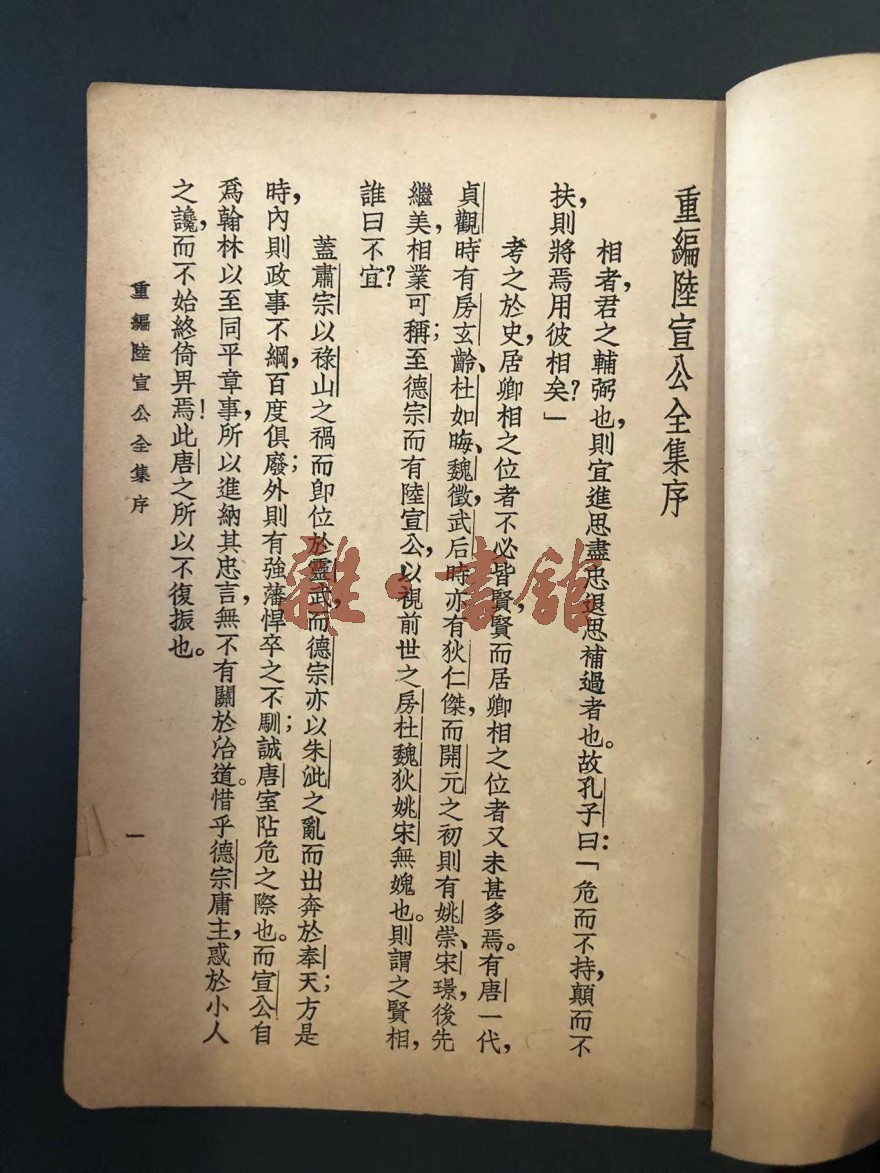 重編陸宣公全集序
相者，君之輔弼也，則宜進思盡忠退思補過者也。故孔子曰：「危而不持，顛而不
扶，則將焉用彼相矣？」
考之於史，居卿相之位者不必皆賢，賢而居卿相之位者又未甚多焉。有唐一代，
貞觀時有房玄齡、杜如晦、魏徵，武后時亦有狄仁傑，而開元之初則有姚崇、宋璟，後先
繼美，相業可稱；至德宗而有陸宣公，以視前世之房杜魏狄姚宋無媿也。則謂之賢相，
誰曰不宜？
蓋肅宗以祿山之禍而卽位於靈武，而德宗亦以朱泚之亂而出奔於奉天；方是
時，內則政事不綱，百度俱廢；外則有強藩悍卒之不馴；誠唐室阽危之際也。而宣公自
爲翰林以至同平章事，所以進納其忠言，無不有關於治道。惜乎德宗庸主，惑於小人
之讒，而不始終倚畀焉！此唐之所以不復振也。
重編陸宣公全集序
一
雜·書館